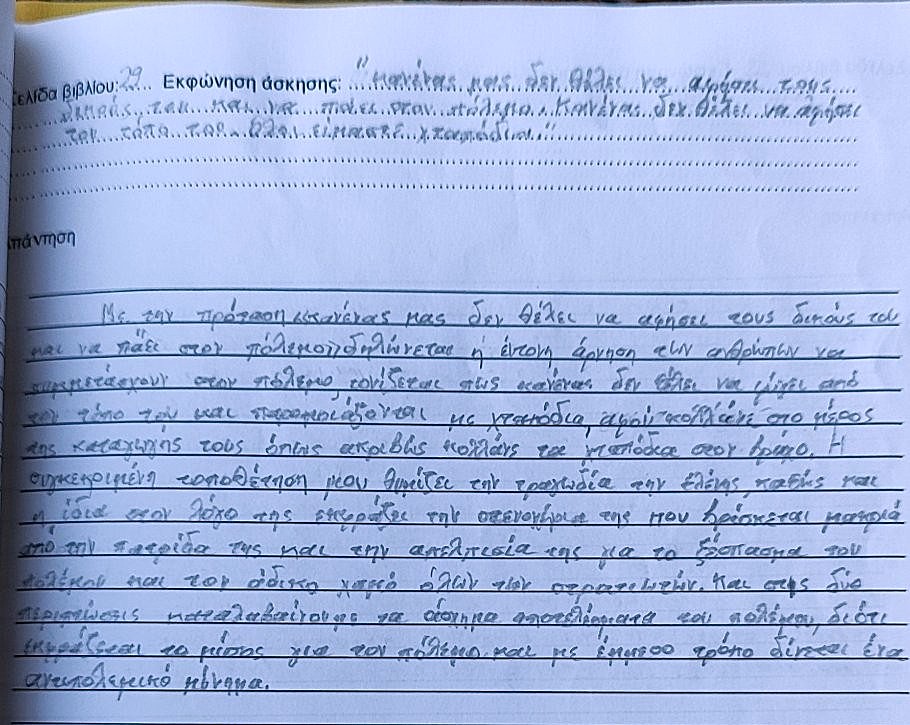 ελίδα βιβλίου: 29 Εκφώνηση άσκησης: "Κανένας μας δεν θέλει να αφήσει τους
δικούς του και να πάει στον πόλεμο. Κανένας δεν θέλει να αφήσει
τον τόπο του. Όλοι είμαστε χταπόδια."
πάντηση
Με την πρόταση "κανένας μας δεν θέλει να αφήσει τους δικούς του
και να πάει στον πόλεμο" δηλώνεται η έντονη άρνηση των ανθρώπων να
συμμετάσχουν στον πόλεμο, τονίζεται πως κανένας δεν θέλει να φύγει από
τον τόπο του και παρομοιάζονται με χταπόδια, αφού κολλάνε στο μέρος
της καταγωγής τους όπως ακριβώς κολλάνε τα χταπόδια στον βράχο. Η
συγκεκριμένη τοποθέτηση μου θυμίζει την τραγωδία την Ελένη, καθώς και
η ίδια στον λόγο της εκφράζει την στενοχώρια της που βρίσκεται μακριά
από την πατρίδα της και την απελπισία της για το ξέσπασμα του
πολέμου και τον άδικο χαμό όλων των στρατιωτών. Και στις δύο
περιπτώσεις καταλαβαίνουμε τα άσχημα αποτελέσματα του πολέμου, διότι
εκφράζεται το μίσος για τον πόλεμο και με έμμεσο τρόπο δίνεται ένα
αντιπολεμικό μήνυμα.